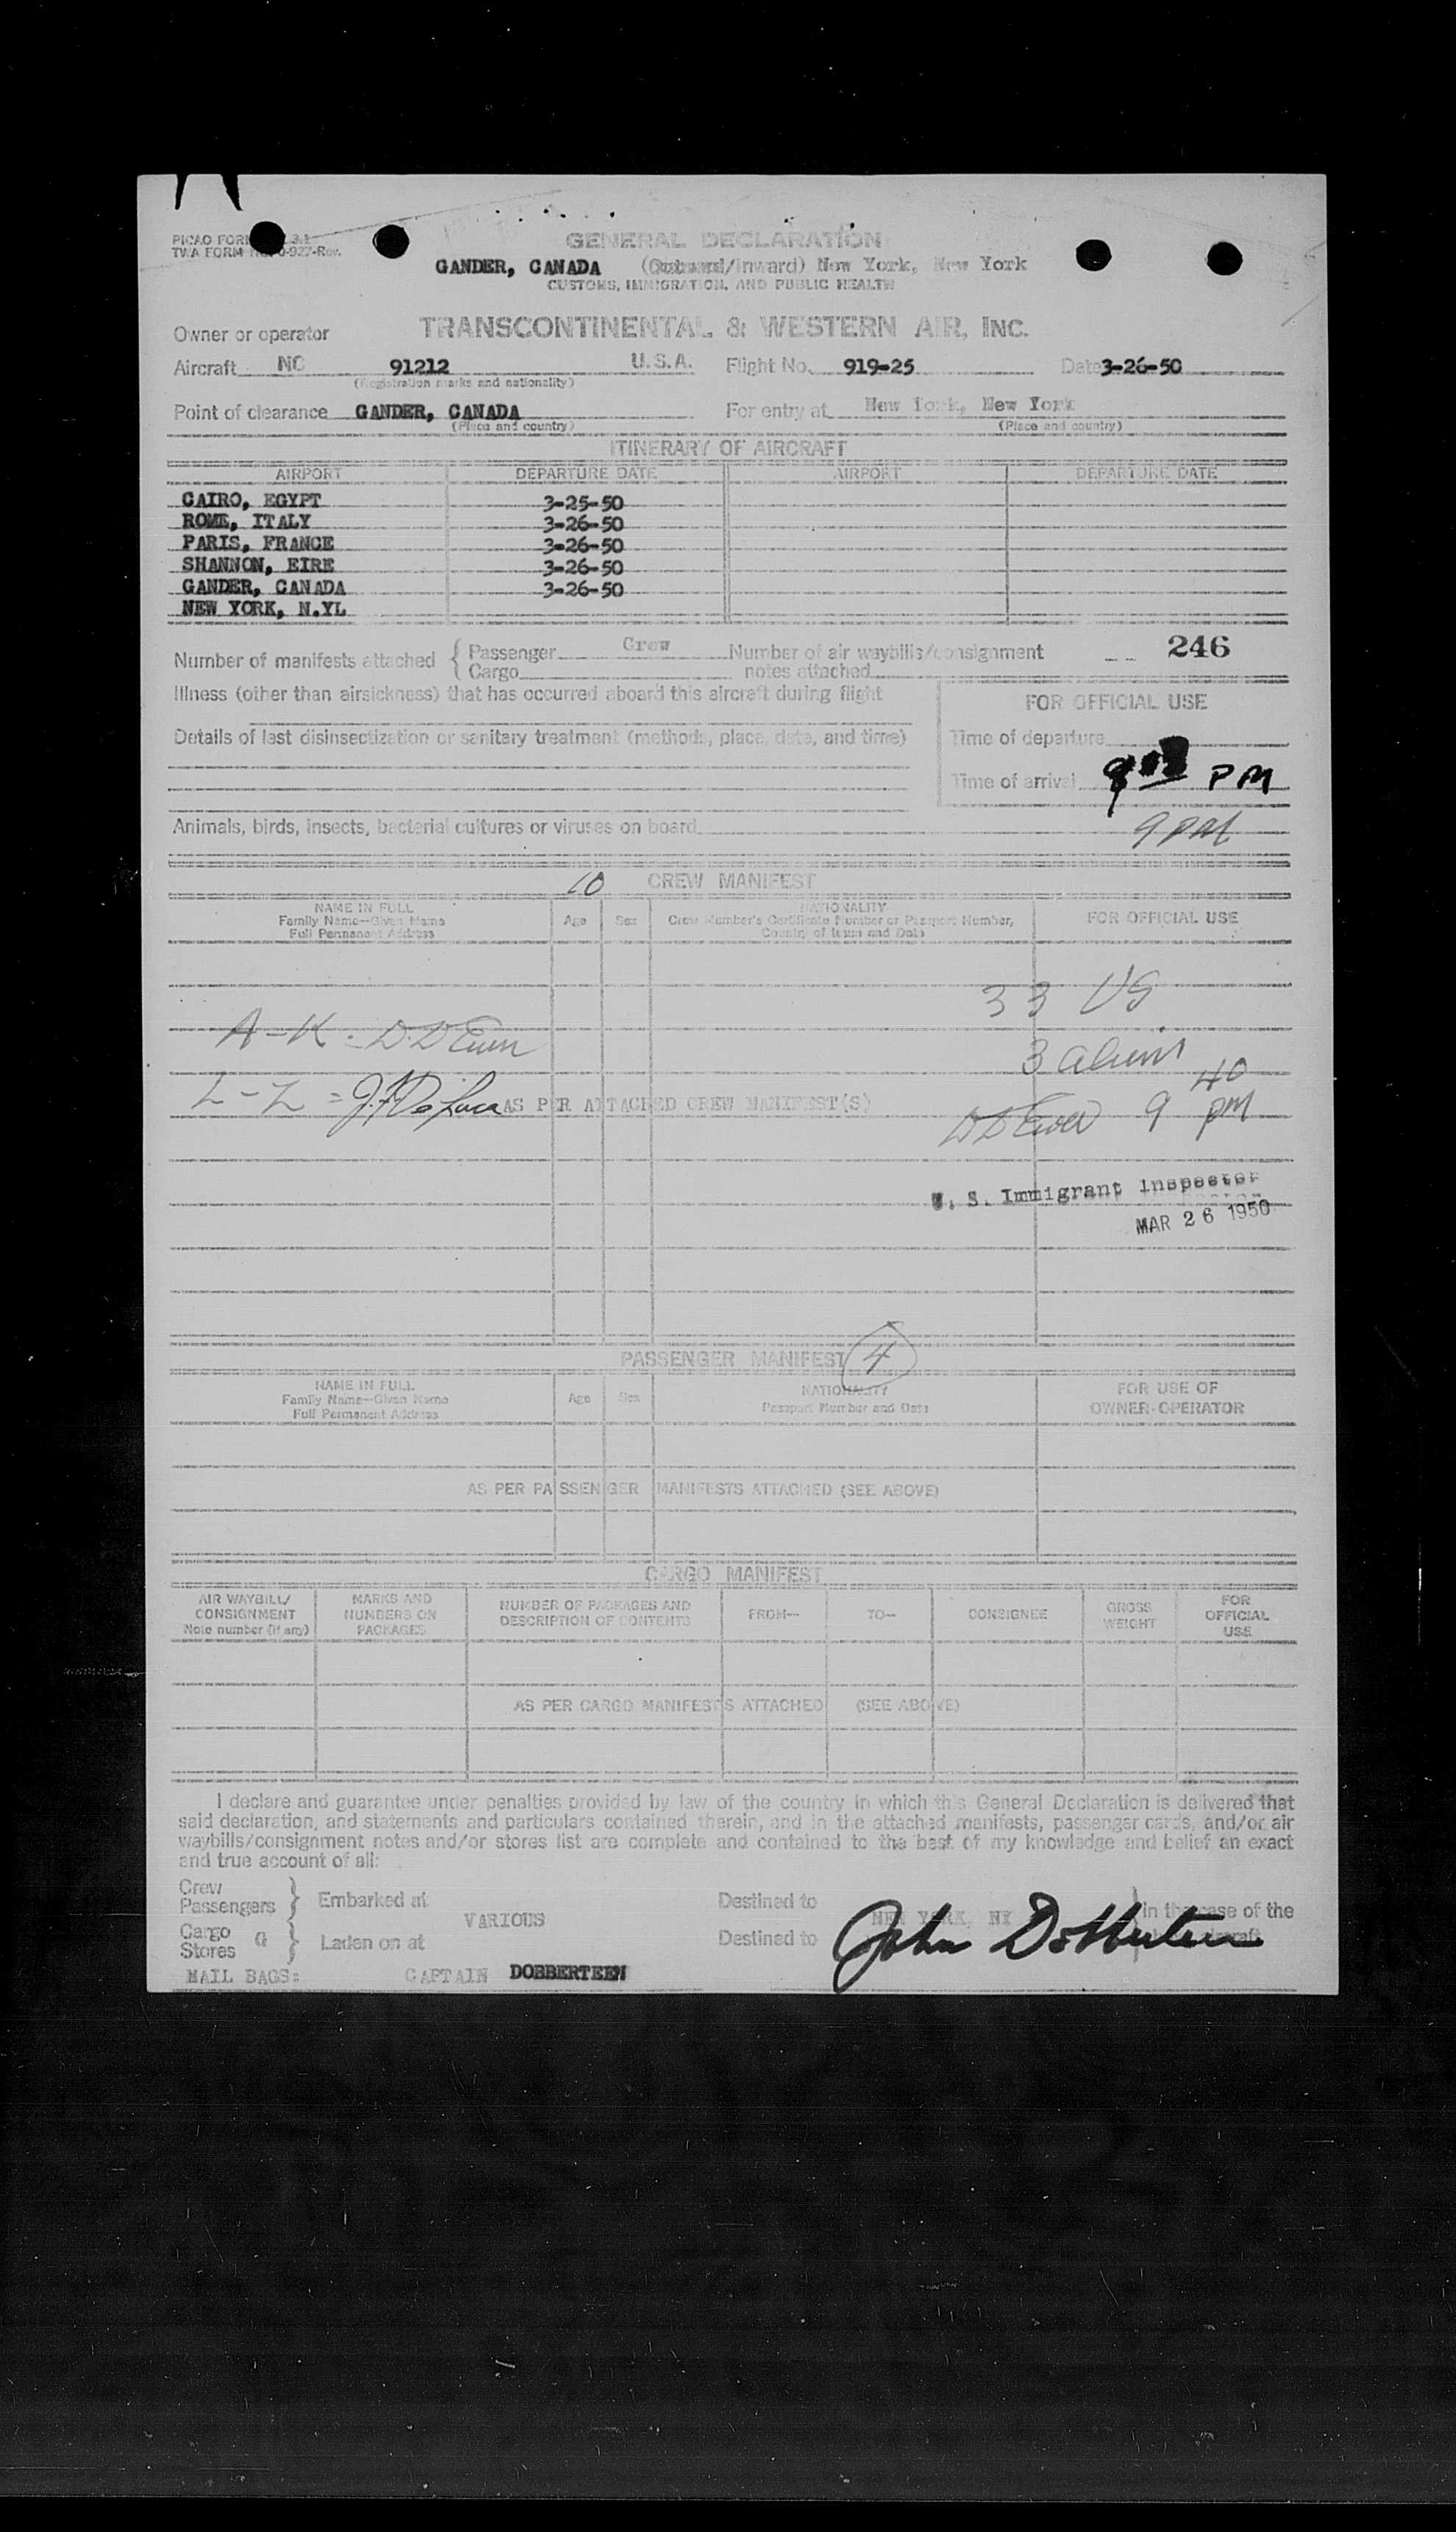 GENERAL DECLARATION
TWA FORM
GANDER, CANADA (Outward/Inward) New York, New York
CUSTOMS, IMMIGRATION, AND PUBLIC HEALTH
Owner or operator TRANSCONTINENTAL & WESTERN AIR, INC.
Aircraft NC 91212 U.S.A. Flight No. 919-25 Date 3-26-50
(Registration marks and nationality)
Point of clearance GANDER, CANADA For entry at New York, New York
(Place and country) (Place and country)
ITINERARY OF AIRCRAFT
AIRPORT DEPARTURE DATE AIRPORT DEPARTURE DATE
CAIRO, EGYPT 3-25-50
ROME, ITALY 3-26-50
PARIS, FRANCE 3-26-50
SHANNON, EIRE 3-26-50
GANDER, CANADA 3-26-50
NEW YORK, N.YL
246
Number of manifests attached { Passenger Crew Number of air waybills/consignment
Cargo notes attached
Illness (other than airsickness) that has occurred aboard this aircraft during flight
FOR OFFICIAL USE
Details of last disinsectization or sanitary treatment (methods, place, date, and time)
Time of departure
Time of arrival PM
Animals, birds, insects, bacterial cultures or viruses on board
9 PM
10 CREW MANIFEST
NAME IN FULL
Family Name--Given Name
Full Permanent Address
Age Sex
NATIONALITY
Crew Member's Certificate Number or Passport Number,
Country of Issue and Date
FOR OFFICIAL USE
33 US
A-K
3 aliens
L-Z = AS PER ATTACHED CREW MANIFEST(S)
9 40 pm
U. S. Immigrant Inspector
MAR 26 1950
PASSENGER MANIFEST 4
NAME IN FULL
Family Name--Given Name
Full Permanent Address
Age Sex
NATIONALITY
Passport Number and Date
FOR USE OF
OWNER-OPERATOR
AS PER PASSENGER MANIFESTS ATTACHED (SEE ABOVE)
CARGO MANIFEST
AIR WAYBILL/
CONSIGNMENT
Note number (if any)
MARKS AND
NUMBERS ON
PACKAGES
NUMBER OF PACKAGES AND
DESCRIPTION OF CONTENTS
FROM-- TO-- CONSIGNEE
GROSS
WEIGHT
FOR
OFFICIAL
USE
AS PER CARGO MANIFESTS ATTACHED (SEE ABOVE)
I declare and guarantee under penalties provided by law of the country in which this General Declaration is delivered that
said declaration, and statements and particulars contained therein, and in the attached manifests, passenger cards, and/or air
waybills/consignment notes and/or stores list are complete and contained to the best of my knowledge and belief an exact
and true account of all:
Crew
Passengers } Embarked at Destined to
VARIOUS NEW YORK, NY in the case of the
Cargo
Stores } Laden on at Destined to
John Dobberteen
MAIL BAGS: CAPTAIN DOBBERTEEN